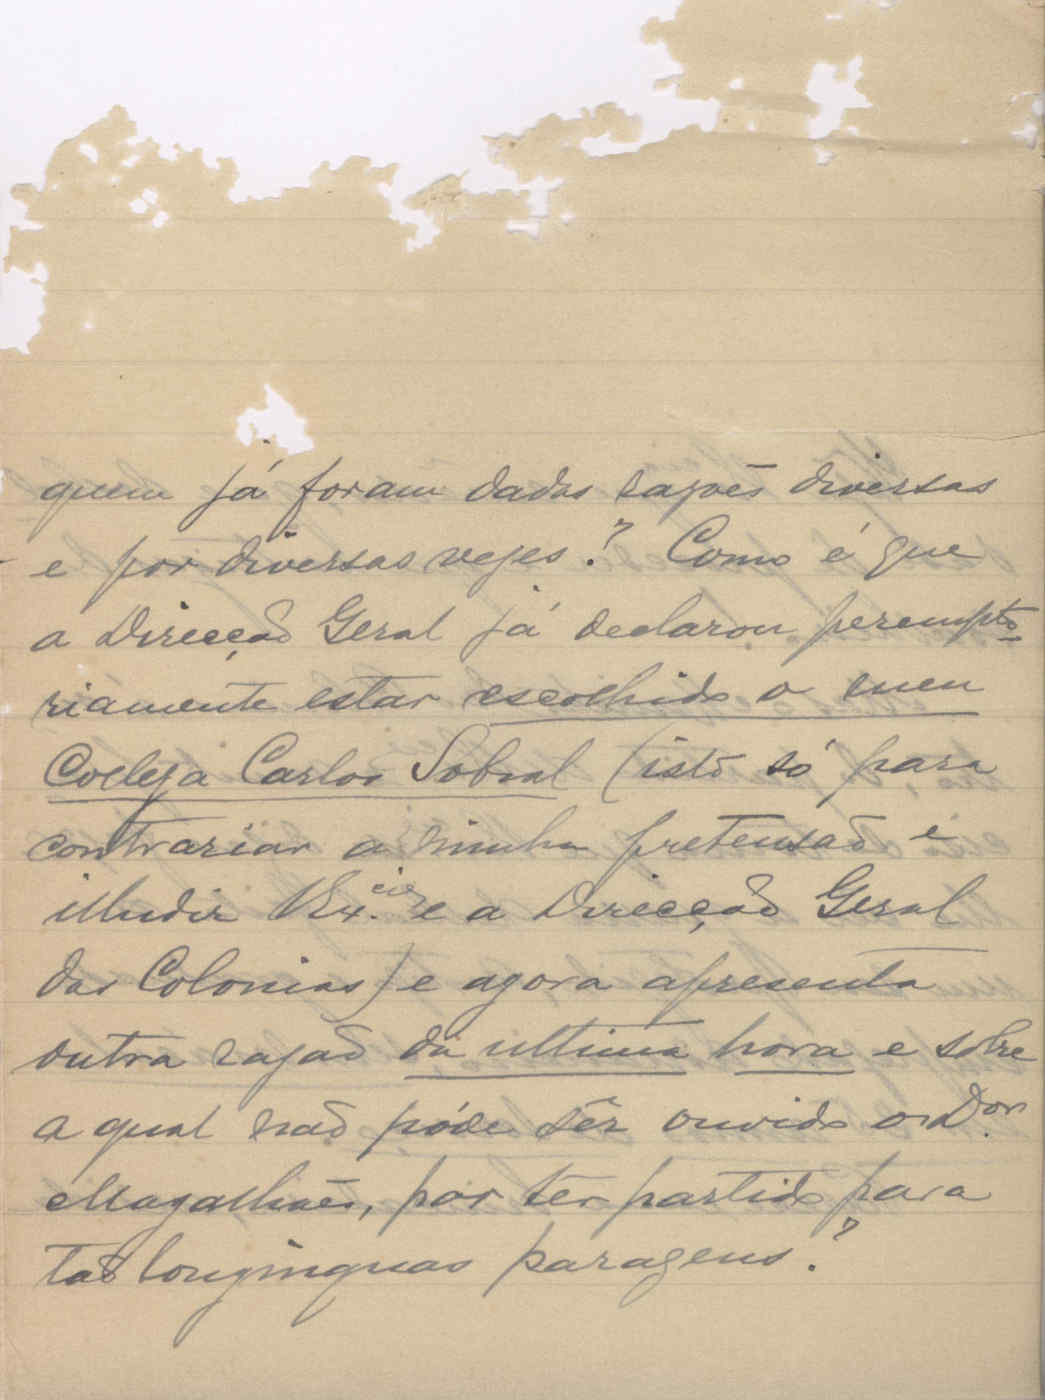 quem já foram dadas razoēs diversas
e por diversas vezes? Como é que
a Direcção Geral já declarou perempto
riamente estar escolhido o meu
Collega Carlos Sobral (isto só para
contrariar a minha pretensão e
illudir V Ex.cia e a Direcção Geral
das Colonias) e agora apresenta
outra razão da ultima hora e sobre
a qual não póde sêr ouvido o Dor
Magalhaēs, por têr partido para
tão longinquas paragens?